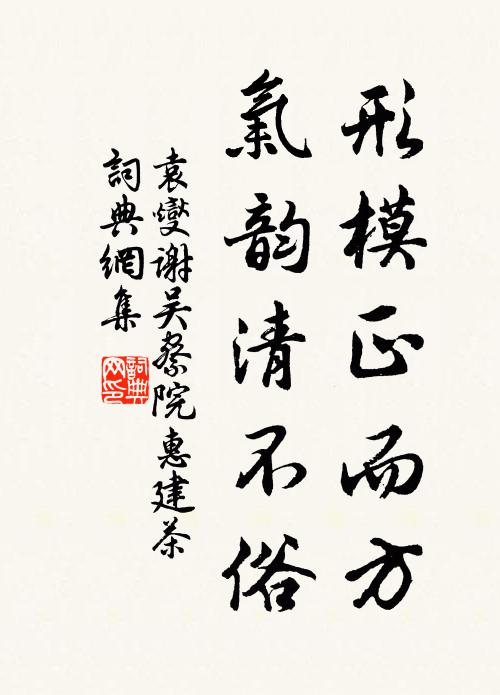 形模正而方
氣韵清不俗
袁燮謝吴察院惠建茶
詞典網集
詞典
网印